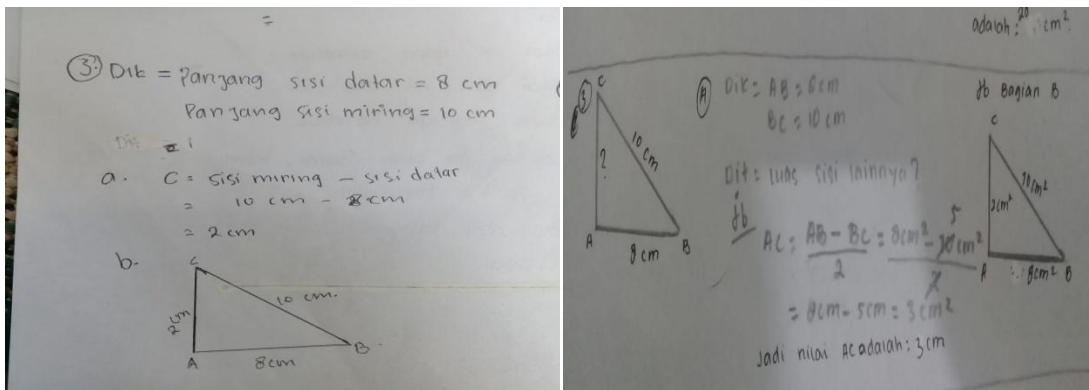 =
3. Dik = Panjang sisi datar = 8 cm
Panjang sisi miring = 10 cm
Dit = i
a. C = sisi miring - sisi datar
= 10 cm - 8 cm
= 2 cm
b.
C
2 cm
10 cm.
A
8 cm
B
adalah: 20 cm²
3
C
?
10 cm
A
8 cm
B
A Dik = AB = 8 cm
BC = 10 cm
Dit = luas sisi lainnya?
Jb
AC = AB - BC / 2 = 8 cm² - 10 cm² / 2
5
= 8 cm - 5 cm = 3 cm²
Jadi nilai AC adalah: 3 cm
Jb Bagian B
C
3 cm²
10 cm²
A
8 cm²
B